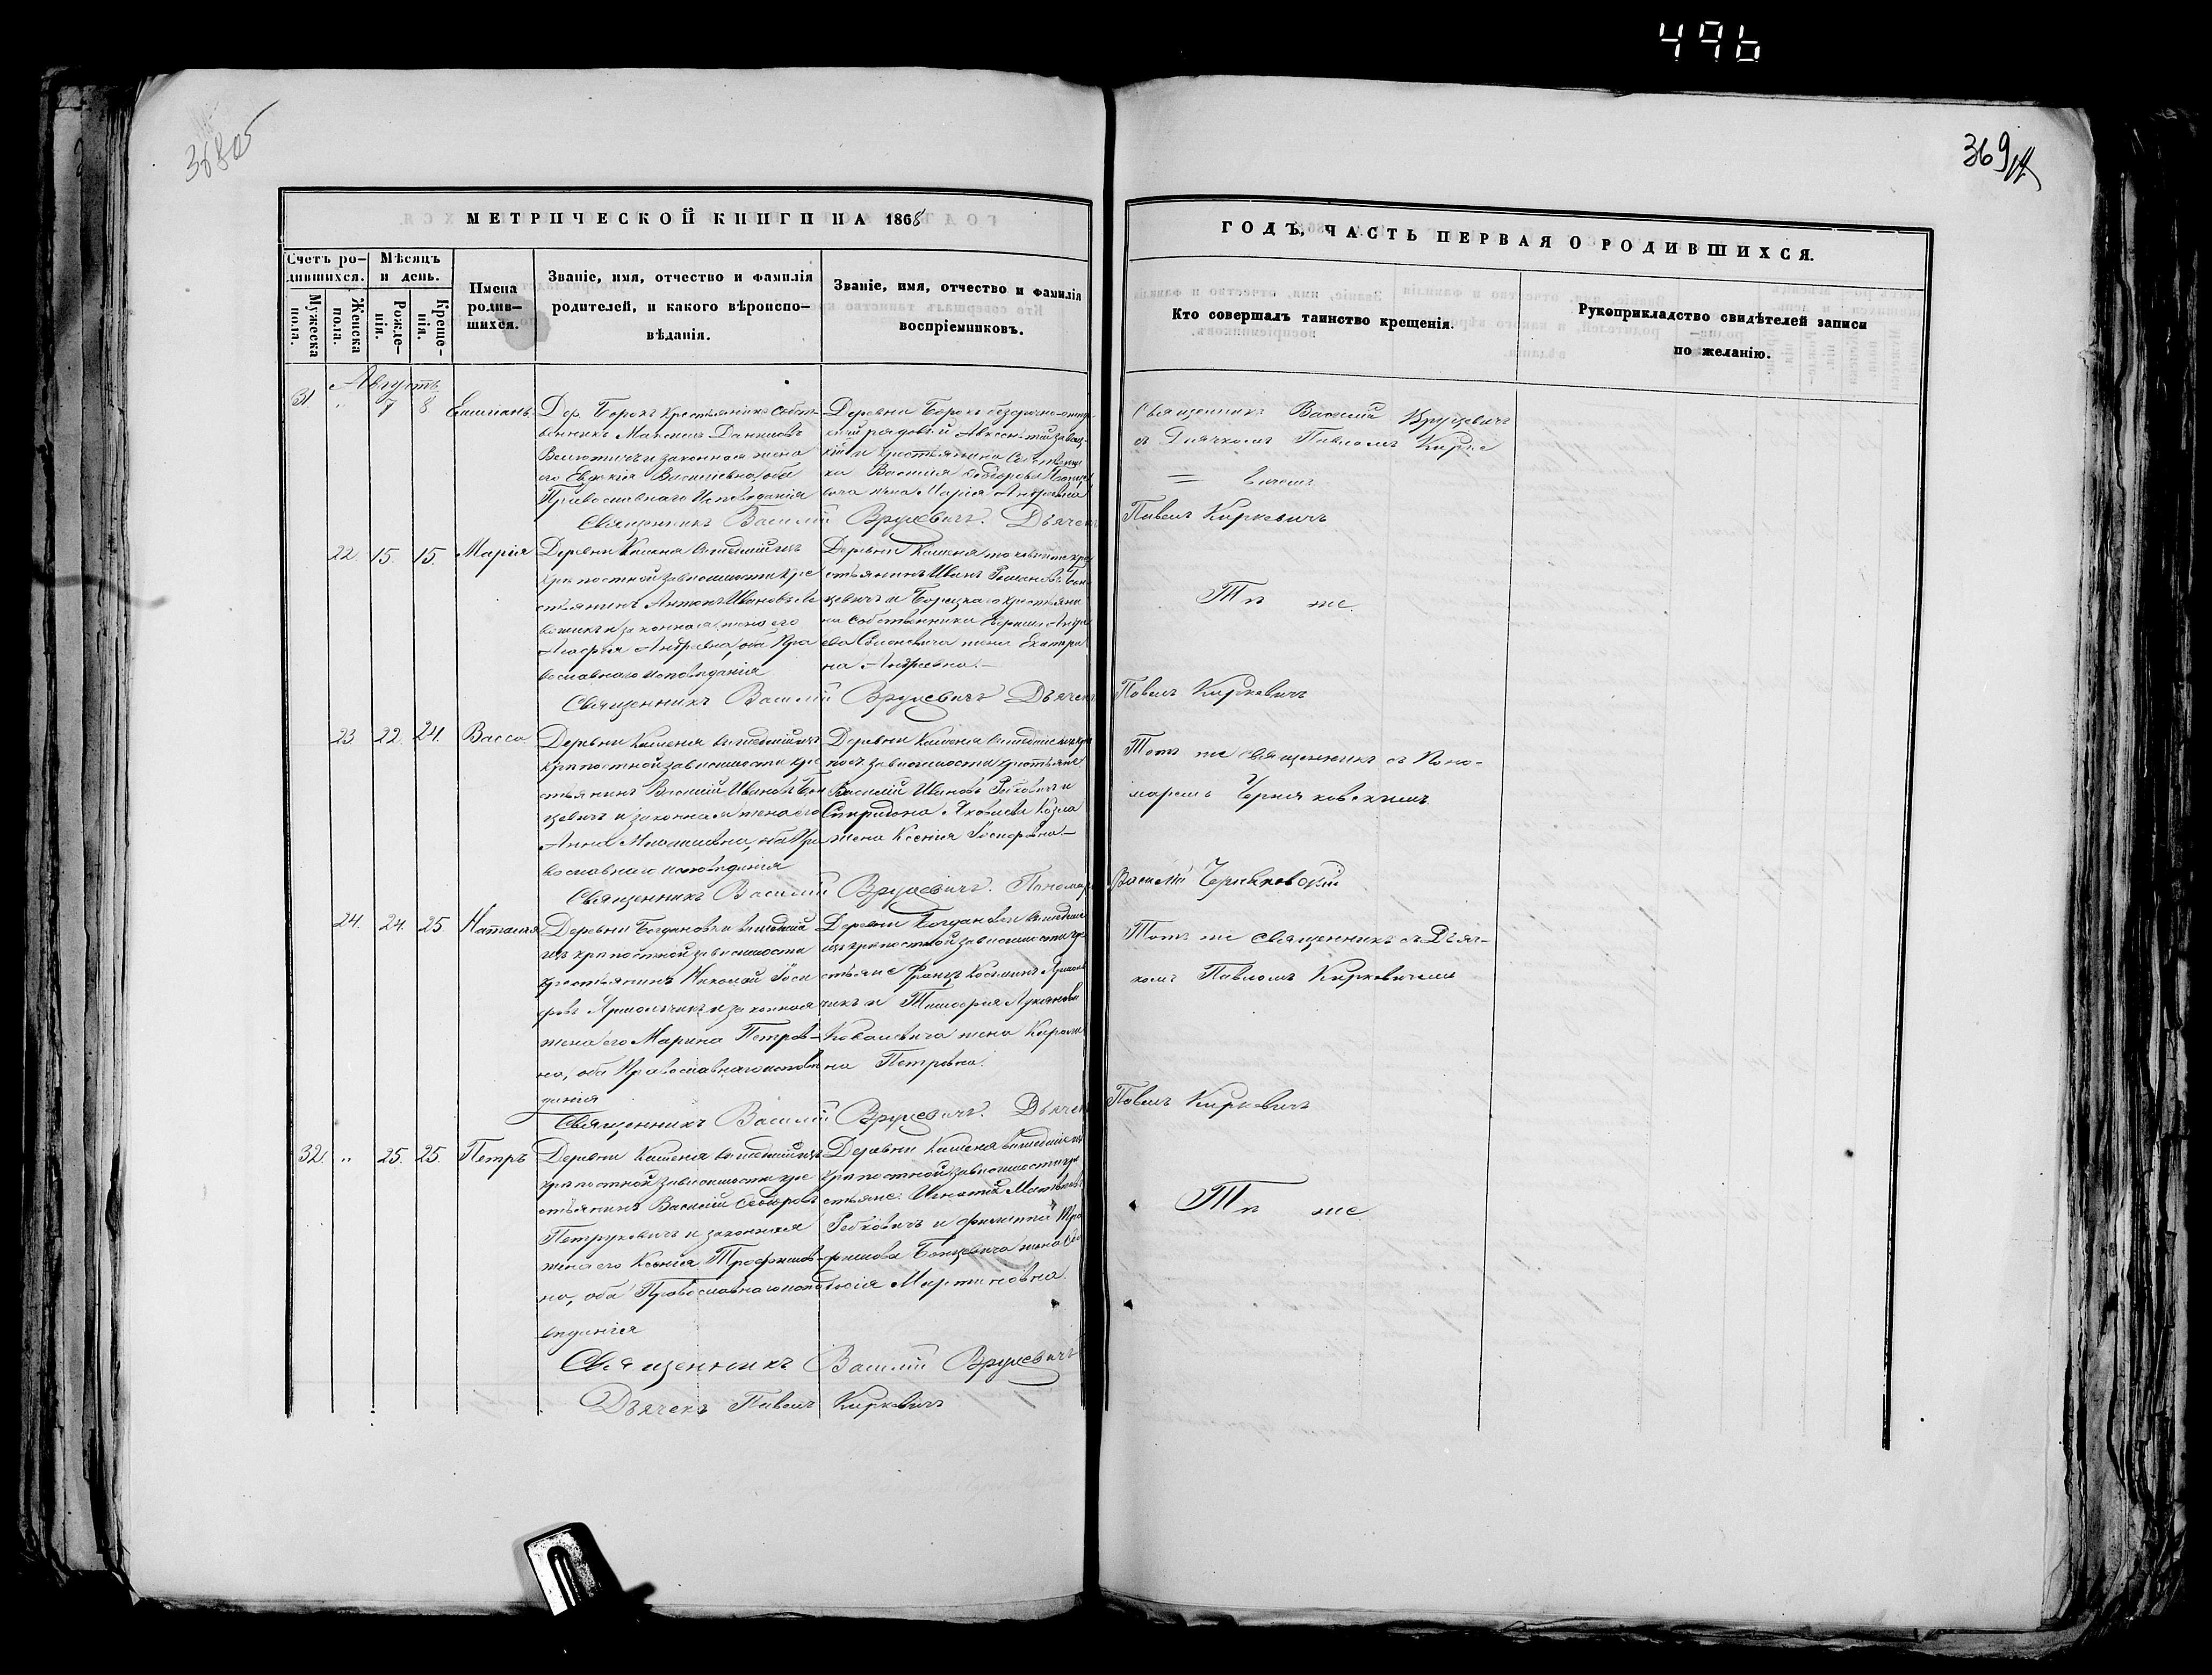 496
368об
369
МЕТРИЧЕСКОЙ КНИГИ НА 1868
ГОДЪ, ЧАСТЬ ПЕРВАЯ О РОДИВШИХСЯ.
Счетъ ро-
дившихся.
Мужеска
пола.
Женска
пола.
Мѣсяцъ
и день.
Рожде-
нія.
Креще-
нія.
Имена
родив-
шихся.
Званіе, имя, отчество и фамилія
родителей, и какого вѣроиспо-
вѣданія.
Званіе, имя, отчество и фамилія
воспріемниковъ.
Кто совершалъ таинство крещенія.
Рукоприкладство свидѣтелей записи
по желанію.
Августъ
31. " 7 8 Емиліанъ
Дер. Борокъ крестьянинъ собст-
венникъ Максимъ Даниловъ
и законная жена
его Евдокія Васильевна, оба
Православнаго Исповѣданія
Деревни Борокъ
рядовый
и крестьянина Собственни
ка Василія Ѳедорова
вича жена Марія Андреевна
Священникъ Василій Вруцевичъ
съ Дьячкомъ Павломъ Кирке
= вичемъ.
Священникъ Василій Вруцевичъ. Дьячекъ
Павелъ Киркевичъ
22. 15. 15. Марія
Деревни Каменя вышедшій изъ
крѣпостной зависимости кре
стьянинъ Антонъ Ивановъ
и законная жена его
Агафія Андреевна, оба Пра
вославнаго исповѣданія
Деревни Каменя
стьянинъ Иванъ Романовъ Бон
цевичъ и Борецкаго крестьяни
на собственника Андре
ева жена Екатери
на Андреевна.—
Тѣ же.
Священникъ Василій Вруцевичъ Дьячекъ
Павелъ Киркевичъ
23 22. 24. Васса
Деревни Каменя вышедшій изъ
крѣпостной зависимости кре
стьянинъ Василій Ивановъ Бон
цевичъ и законная жена его
Анна оба Пра
вославнаго исповѣданія
Деревни Каменя вышедшіе изъ крѣ
пост. зависимости крестьяне
Василій Ивановъ Рабковичъ и
Спиридона Яковлева Козла
жена Ксенія Іосифовна.—
Тотъ же священникъ съ Поно-
маремъ Черняковскимъ.
Священникъ Василій Вруцевичъ. Пономарь
Василій Черняковскій
24. 24. 25 Наталія
Деревни Богдановки вышедшій
изъ крѣпостной зависимости
крестьянинъ Николай Іоси
фовъ Ярмольчикъ и законная
жена его Марина Петров-
на, оба Православнаго исповѣ
данія
Деревни Богдановки вышедшіе
изъ крѣпостной зависимости кре
стьяне Францъ Косминъ Ярмоль
чикъ и Тимофея Лукьянова
Ковалевича жена
на Петровна.
Тотъ же священникъ съ Дьяч-
комъ Павломъ Киркевичемъ
Священникъ Василій Вруцевичъ. Дьячекъ
Павелъ Киркевичъ
32. " 25. 25. Петръ
Деревни Каменя вышедшій изъ
крѣпостной зависимости кре
стьянинъ Василій Ѳедоровъ
Петруковичъ и законная
жена его Ксенія Трофимов-
на, оба Православнаго испо
вѣданія
Деревни Каменя вышедшіе изъ
крѣпостной зависимости кре
стьяне: Игнатій Матвѣевъ
Рабковичъ и Филиппа Тро
фимова Бонцевича жена
Мартиновна.
Тѣ же.
Священникъ Василій Вруцевичъ
Дьячекъ Павелъ Киркевичъ